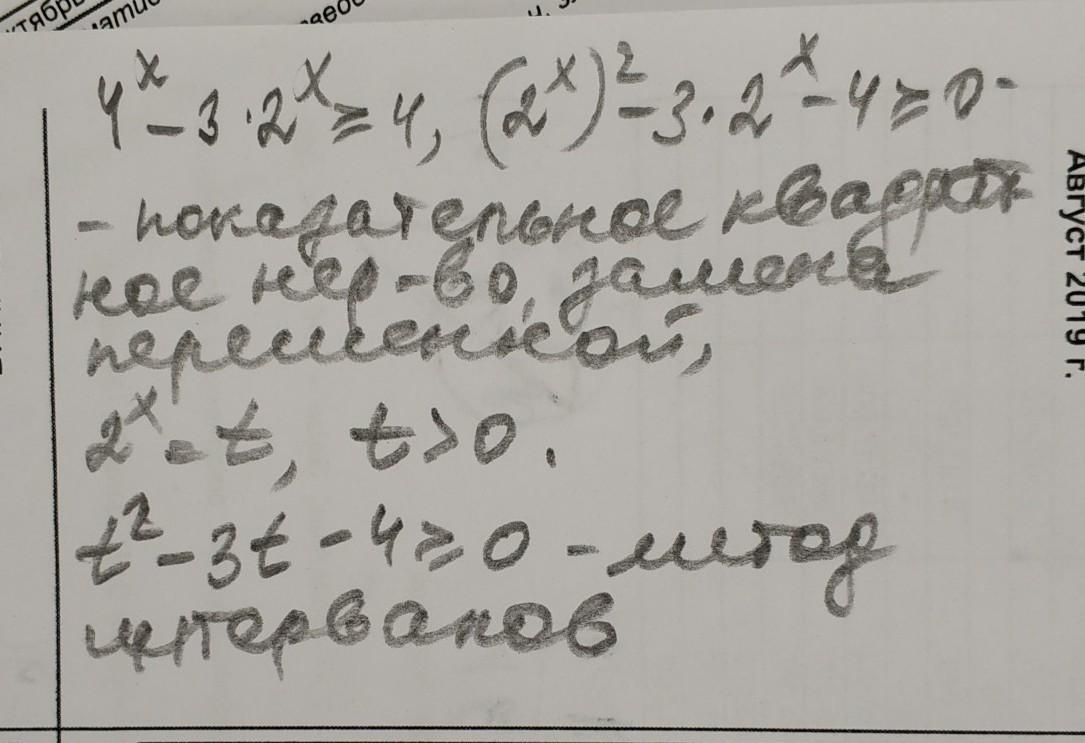 4^x - 3 · 2^x ≥ 4, (2^x)^2 - 3 · 2^x - 4 ≥ 0 -
- показательное квадрат
ное нер-во, замена
переменной,
2^x = t, t > 0.
t^2 - 3t - 4 ≥ 0 - метод
интервалов
Август 2019 г.